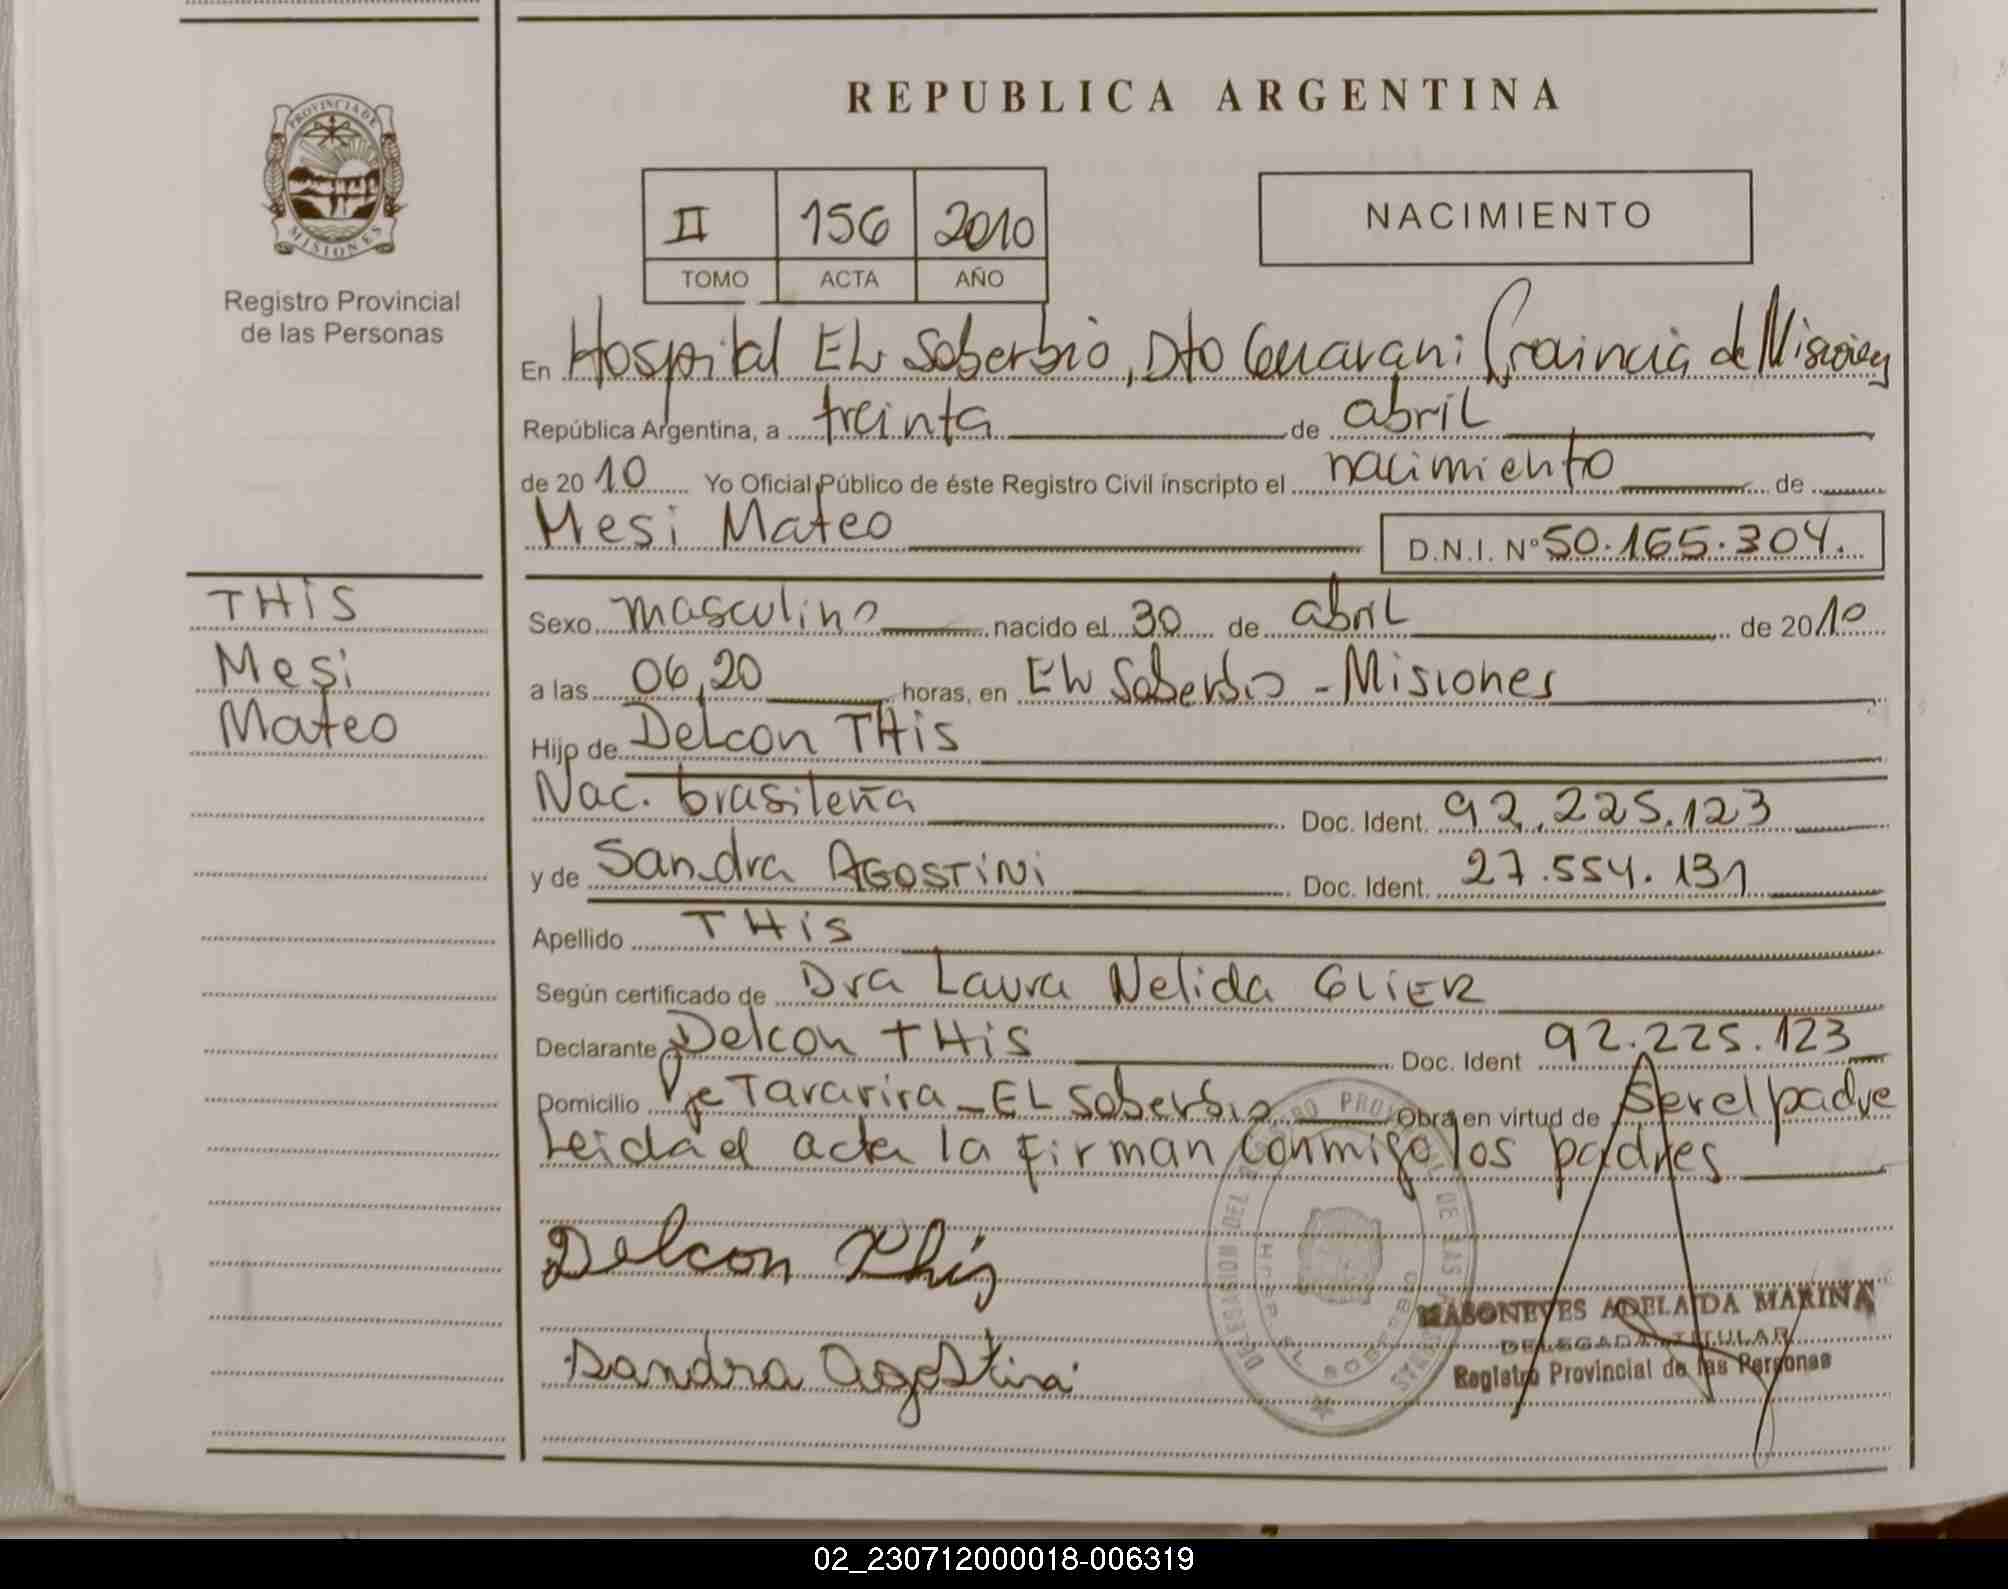 REPUBLICA ARGENTINA
PROVINCIA DE MISIONES
Registro Provincial
de las Personas
II 156 2010
TOMO ACTA AÑO
NACIMIENTO
En Hospital EL Soberbio, Dto Guarani Provincia de Misiones
República Argentina, a treinta de abril
de 2010 Yo Oficial Público de éste Registro Civil inscripto el nacimiento de
Mesi Mateo D.N.I. Nº 50.165.304.
THis
Mesi
Mateo
Sexo masculino nacido el 30 de abril de 2010
a las 06,20 horas, en EL Soberbio - Misiones
Hijo de Delcon THis
Nac. brasileña Doc. Ident. 92.225.123
y de Sandra AGOSTiNi Doc. Ident. 27.554.131
Apellido THis
Según certificado de Dra Laura Nelida GLiER
Declarante Delcon THis Doc. Ident 92.225.123
Domicilio Pje Tararira - EL Soberbio Obra en virtud de Ser el padre
Leida el acta la firman conmigo los padres
Delcon This
Sandra Agostini
ADELAIDA MARINA
DELEGADA TITULAR
Registro Provincial de las Personas
02_230712000018-006319